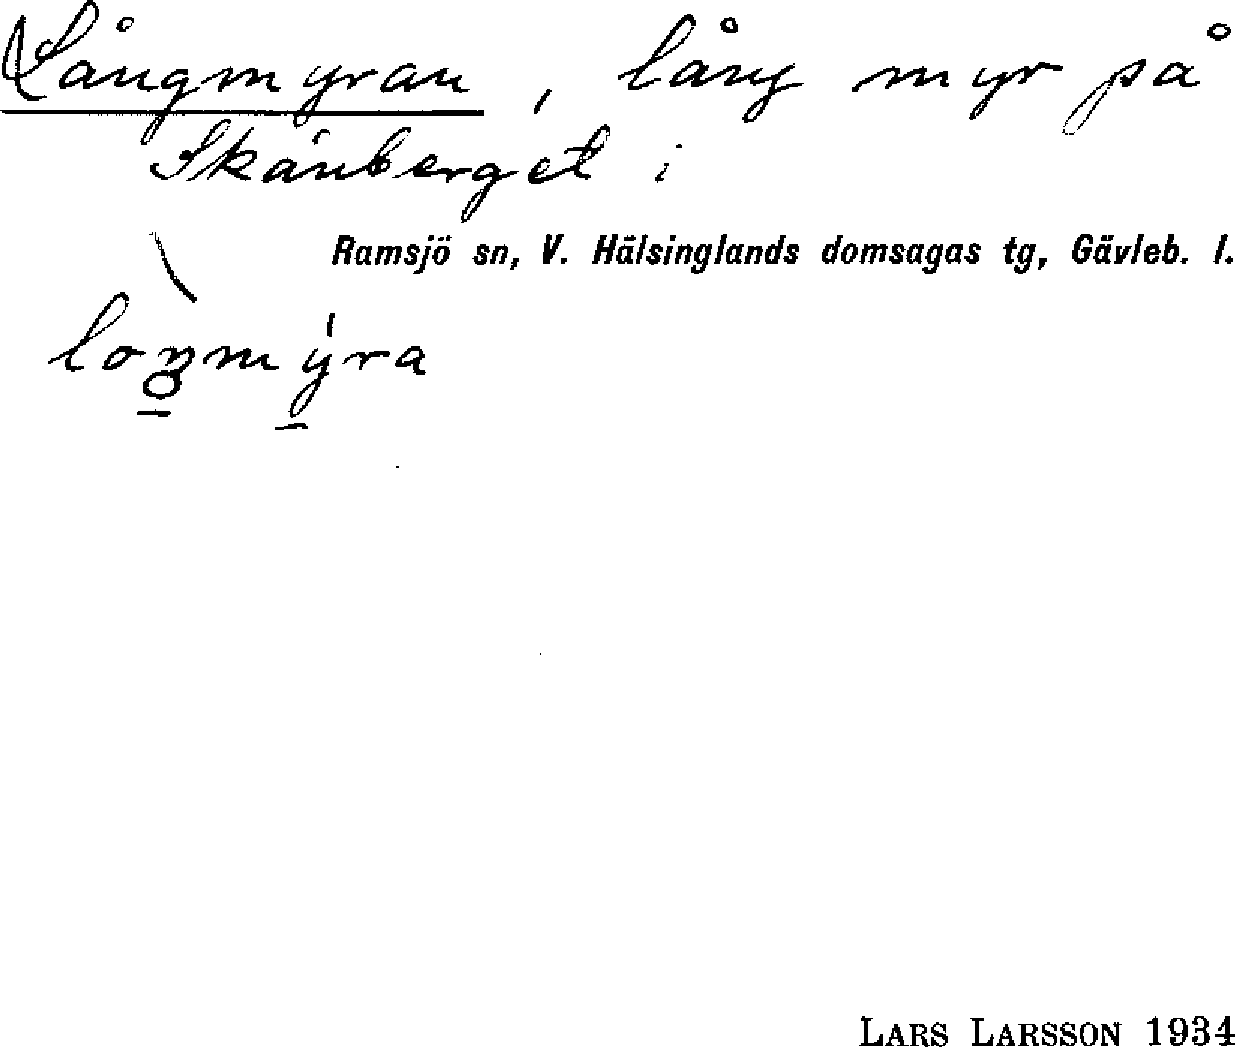 Långmyran, lång myr på
Skánberget i
Ramsjö sn, V. Hälsinglands domsagas tg, Gävleb. l.
LARS LARSSON 1934